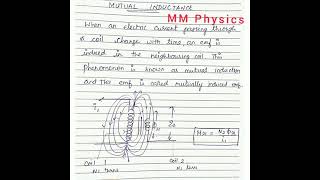 MUTUAL INDUCTANCE
MM Physics
When an electric current passing through
a coil change with time, an emf is
induced in the neighbouring coil. This
phenomenon is known as mutual induction
and The emf is called mutually induced emf.
M21 = N2 Φ21 / i1
i1
Coil 1
N1 turns
Coil 2
N2 turns